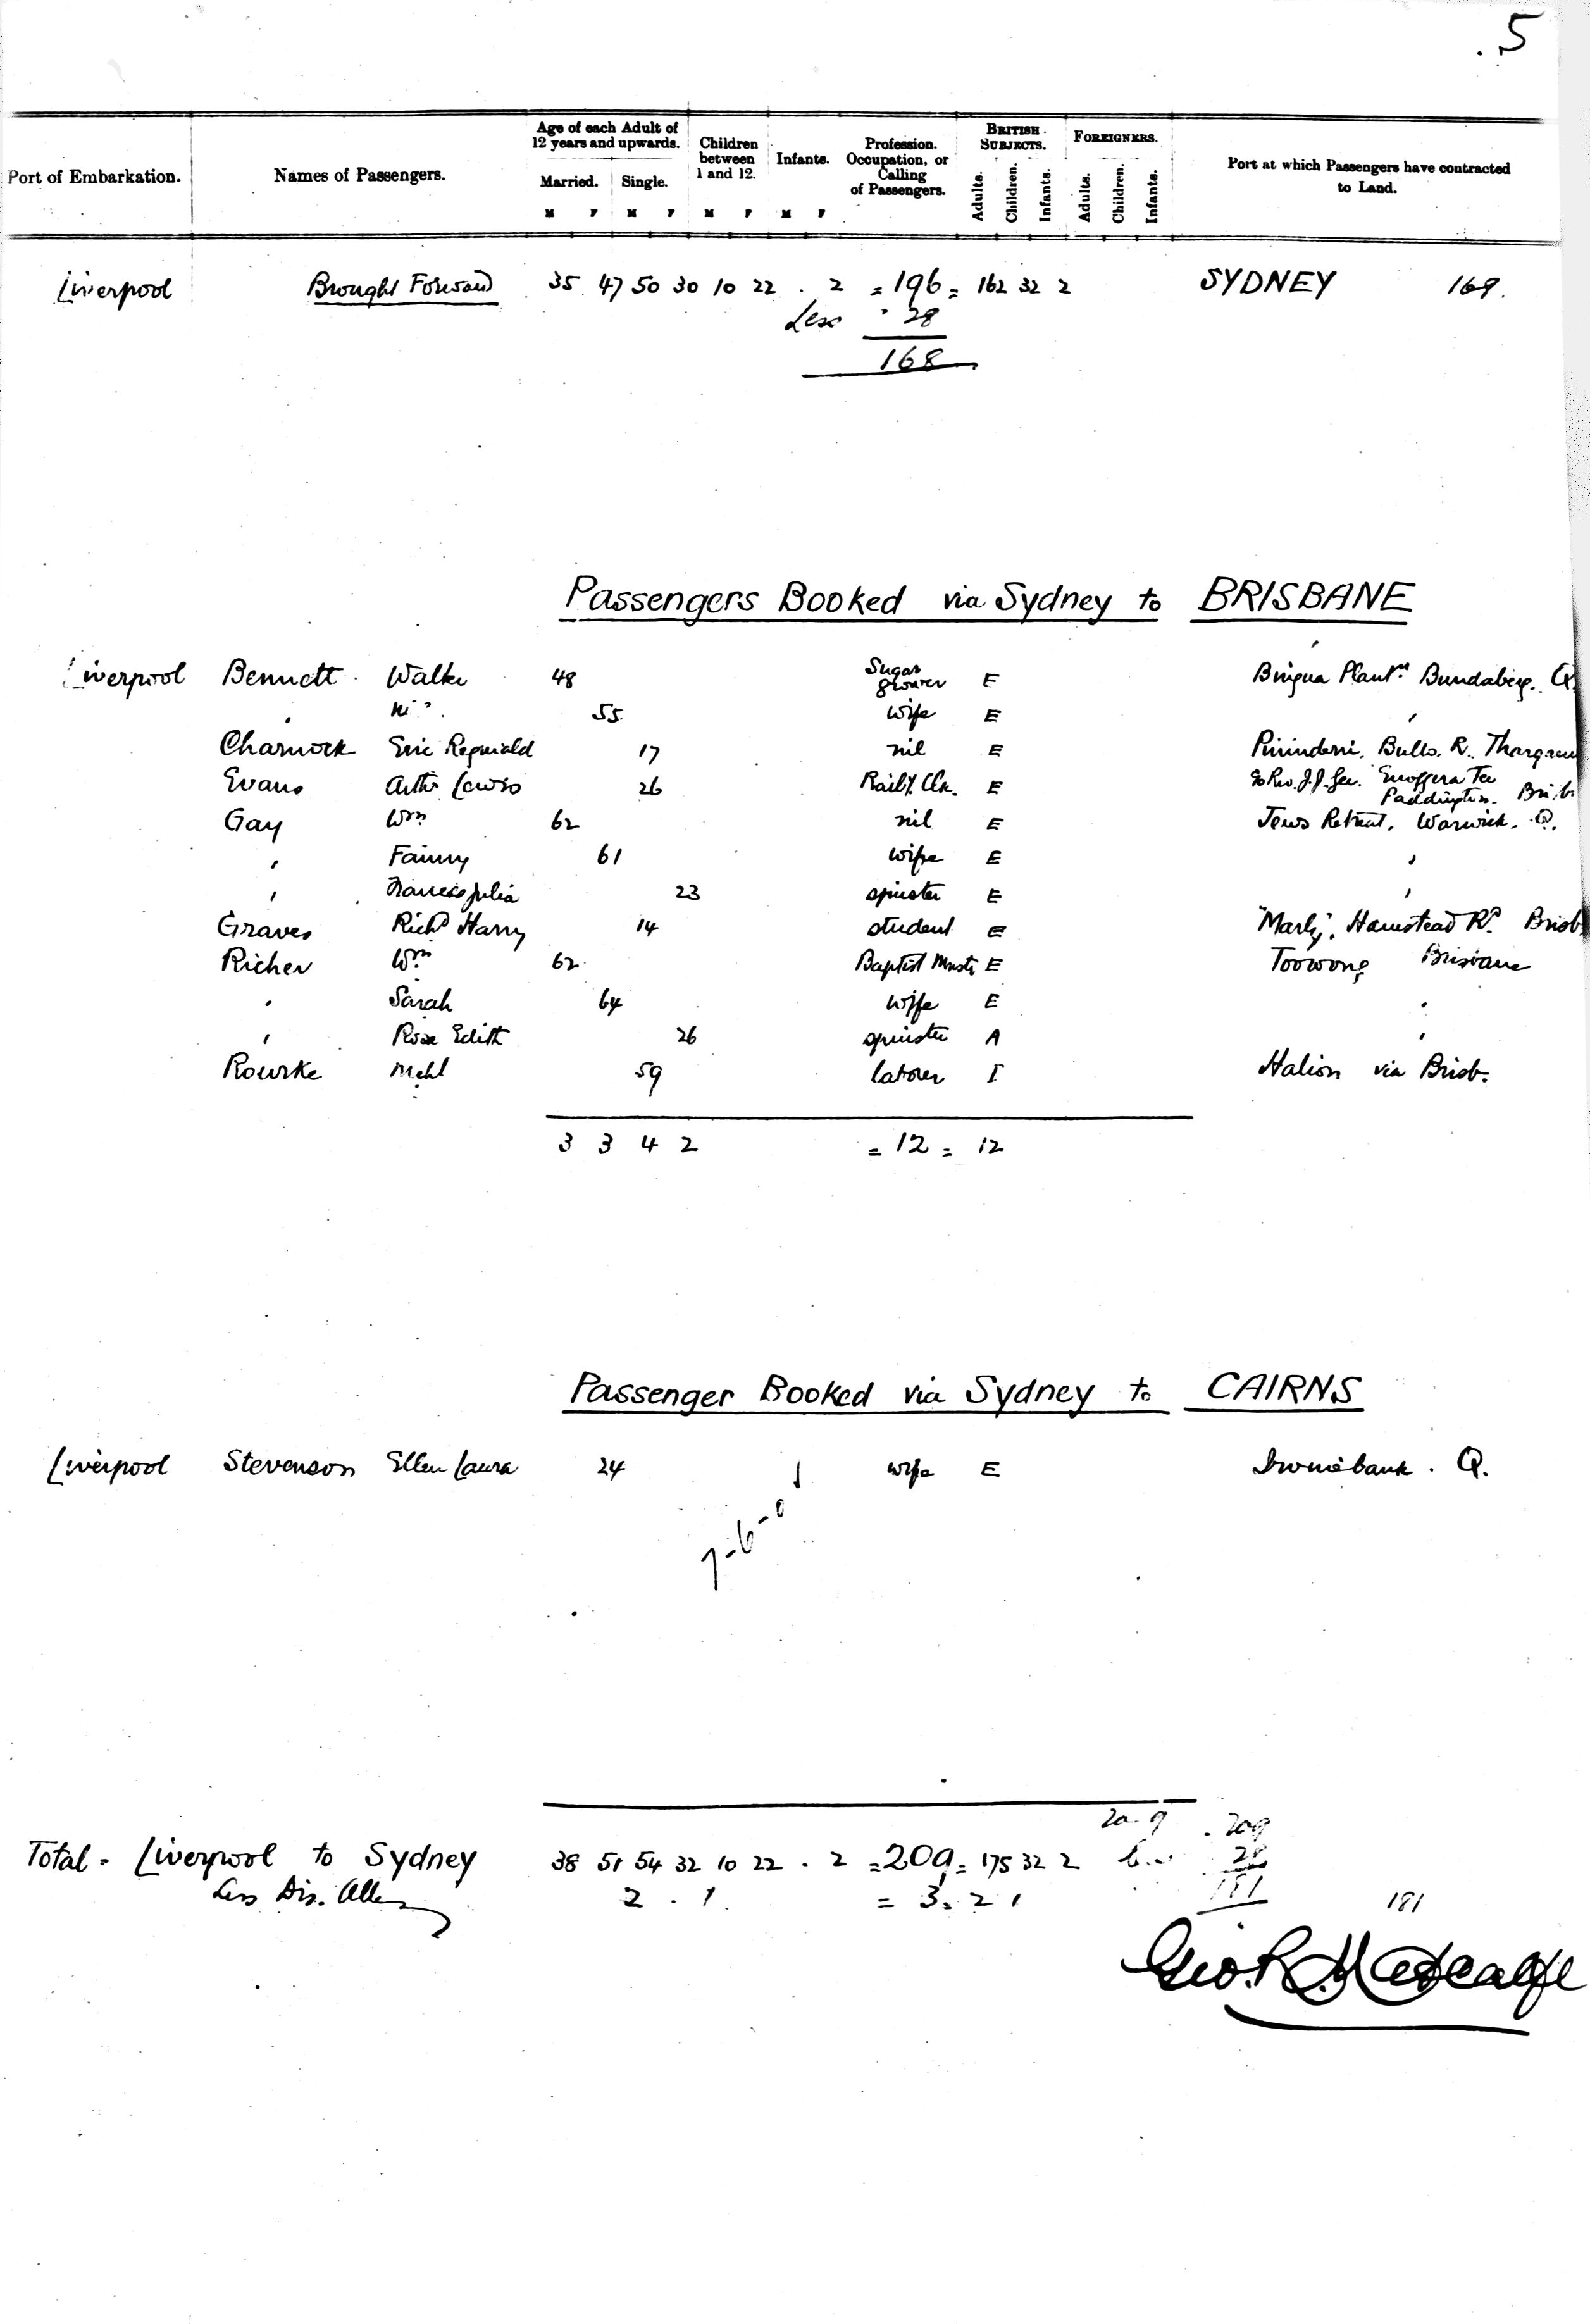 .5
Port of Embarkation. Names of Passengers. Age of each Adult of 12 years and upwards. Married. Single. Children between 1 and 12. Infants. Profession. Occupation, or Calling of Passengers. BRITISH SUBJECTS. Adults. Children. Infants. FOREIGNERS. Adults. Children. Infants. Port at which Passengers have contracted to Land.
M F M F M F M F
Liverpool Brought Forward 35 47 50 30 10 22 . 2 = 196 = 162 32 2 SYDNEY 169.
Less 28
168
Passengers Booked via Sydney to BRISBANE
Liverpool Bennett Walter 48 Sugar grower E Bingera Plantn Bundaberg. Q
" 55 wife E "
Charnock Eric Reginald 17 nil E Bullo. R.
Evans Arthr Lewis 26 Raily. Clk. E c/o Rev. J.J. Enoggera Tce Paddington. Brisb.
Gay Wm 62 nil E Jews Retreat, Warwick. Q.
" Fanny 61 wife E "
" Frances Julia 23 spinster E "
Graves Richd Harry 14 student E Hamstead Rd. Brisb
Richer Wm 62 Baptist Minstr E Toowong Brisbane
" Sarah 64 wife E "
" Rose Edith 26 spinster A "
Rourke Michl 59 laborer I Halion via Brisb.
3 3 4 2 = 12 = 12
Passenger Booked via Sydney to CAIRNS
Liverpool Stevenson Ellen Laura 24 wife E Irvinebank. Q.
7-6-0
209 209
Total - Liverpool to Sydney 38 51 54 32 10 22 . 2 = 209 = 175 32 2 28
Less Dis. 2 . 1 = 3 = 2 1 181 181
Geo. R. Metcalfe